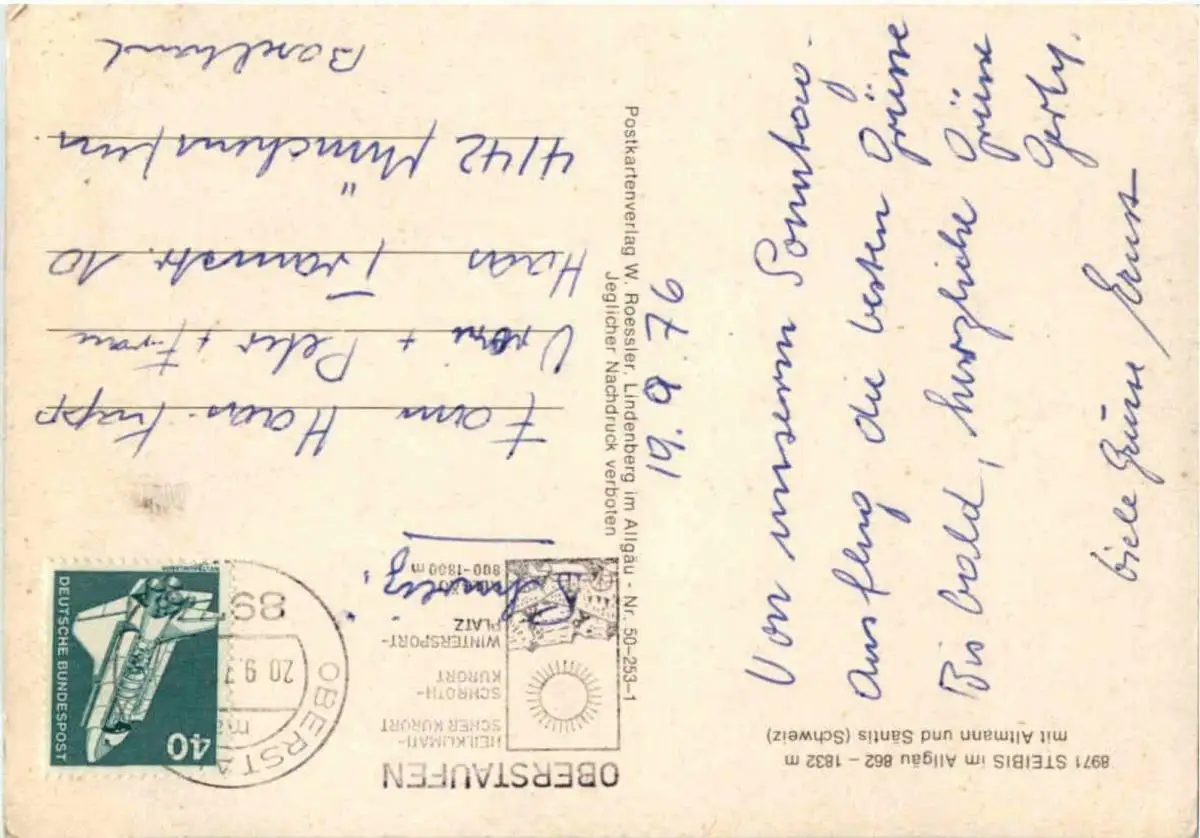 8971 STEIBIS im Allgäu 862 – 1832 m
mit Altmann und Säntis (Schweiz)
19.9.76
Von unserm Sonntag-
Ausflug die besten Grüsse
Bis bald, herzliche Grüsse
Gerty.
viele Grüsse Ernst
Postkartenverlag W. Roessler, Lindenberg im Allgäu - Nr. 50–253–1
Jeglicher Nachdruck verboten
OBERSTAUFEN
HEILKLIMATI-
SCHER KURORT
SCHROTH-
KURORT
WINTERSPORT-
PLATZ
800-1800 m
OBERSTA
20.9.7
DEUTSCHE BUNDESPOST
40
Fam Haas-
+ Peter + Frau
Haas Tramstr. 10
4142 Münchenstein
Baselland
Schweiz.